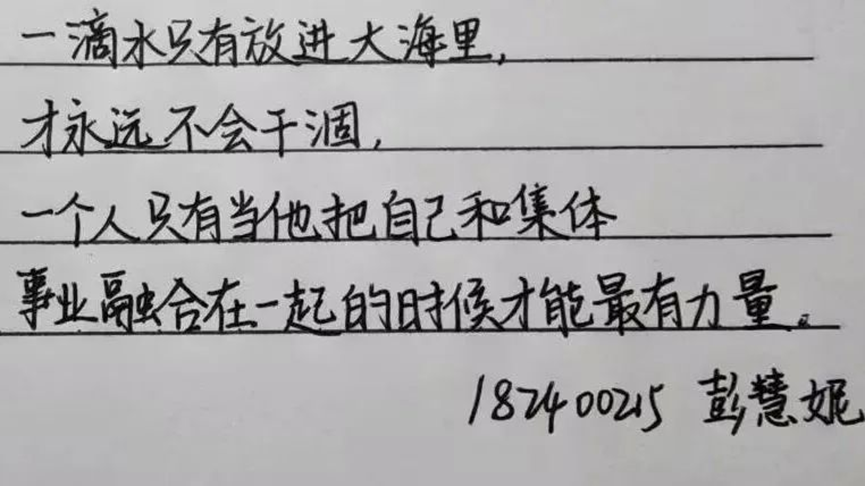 一滴水只有放进大海里,
才永远不会干涸,
一个人只有当他把自己和集体
事业融合在一起的时候才能最有力量。
182400215 彭慧妮